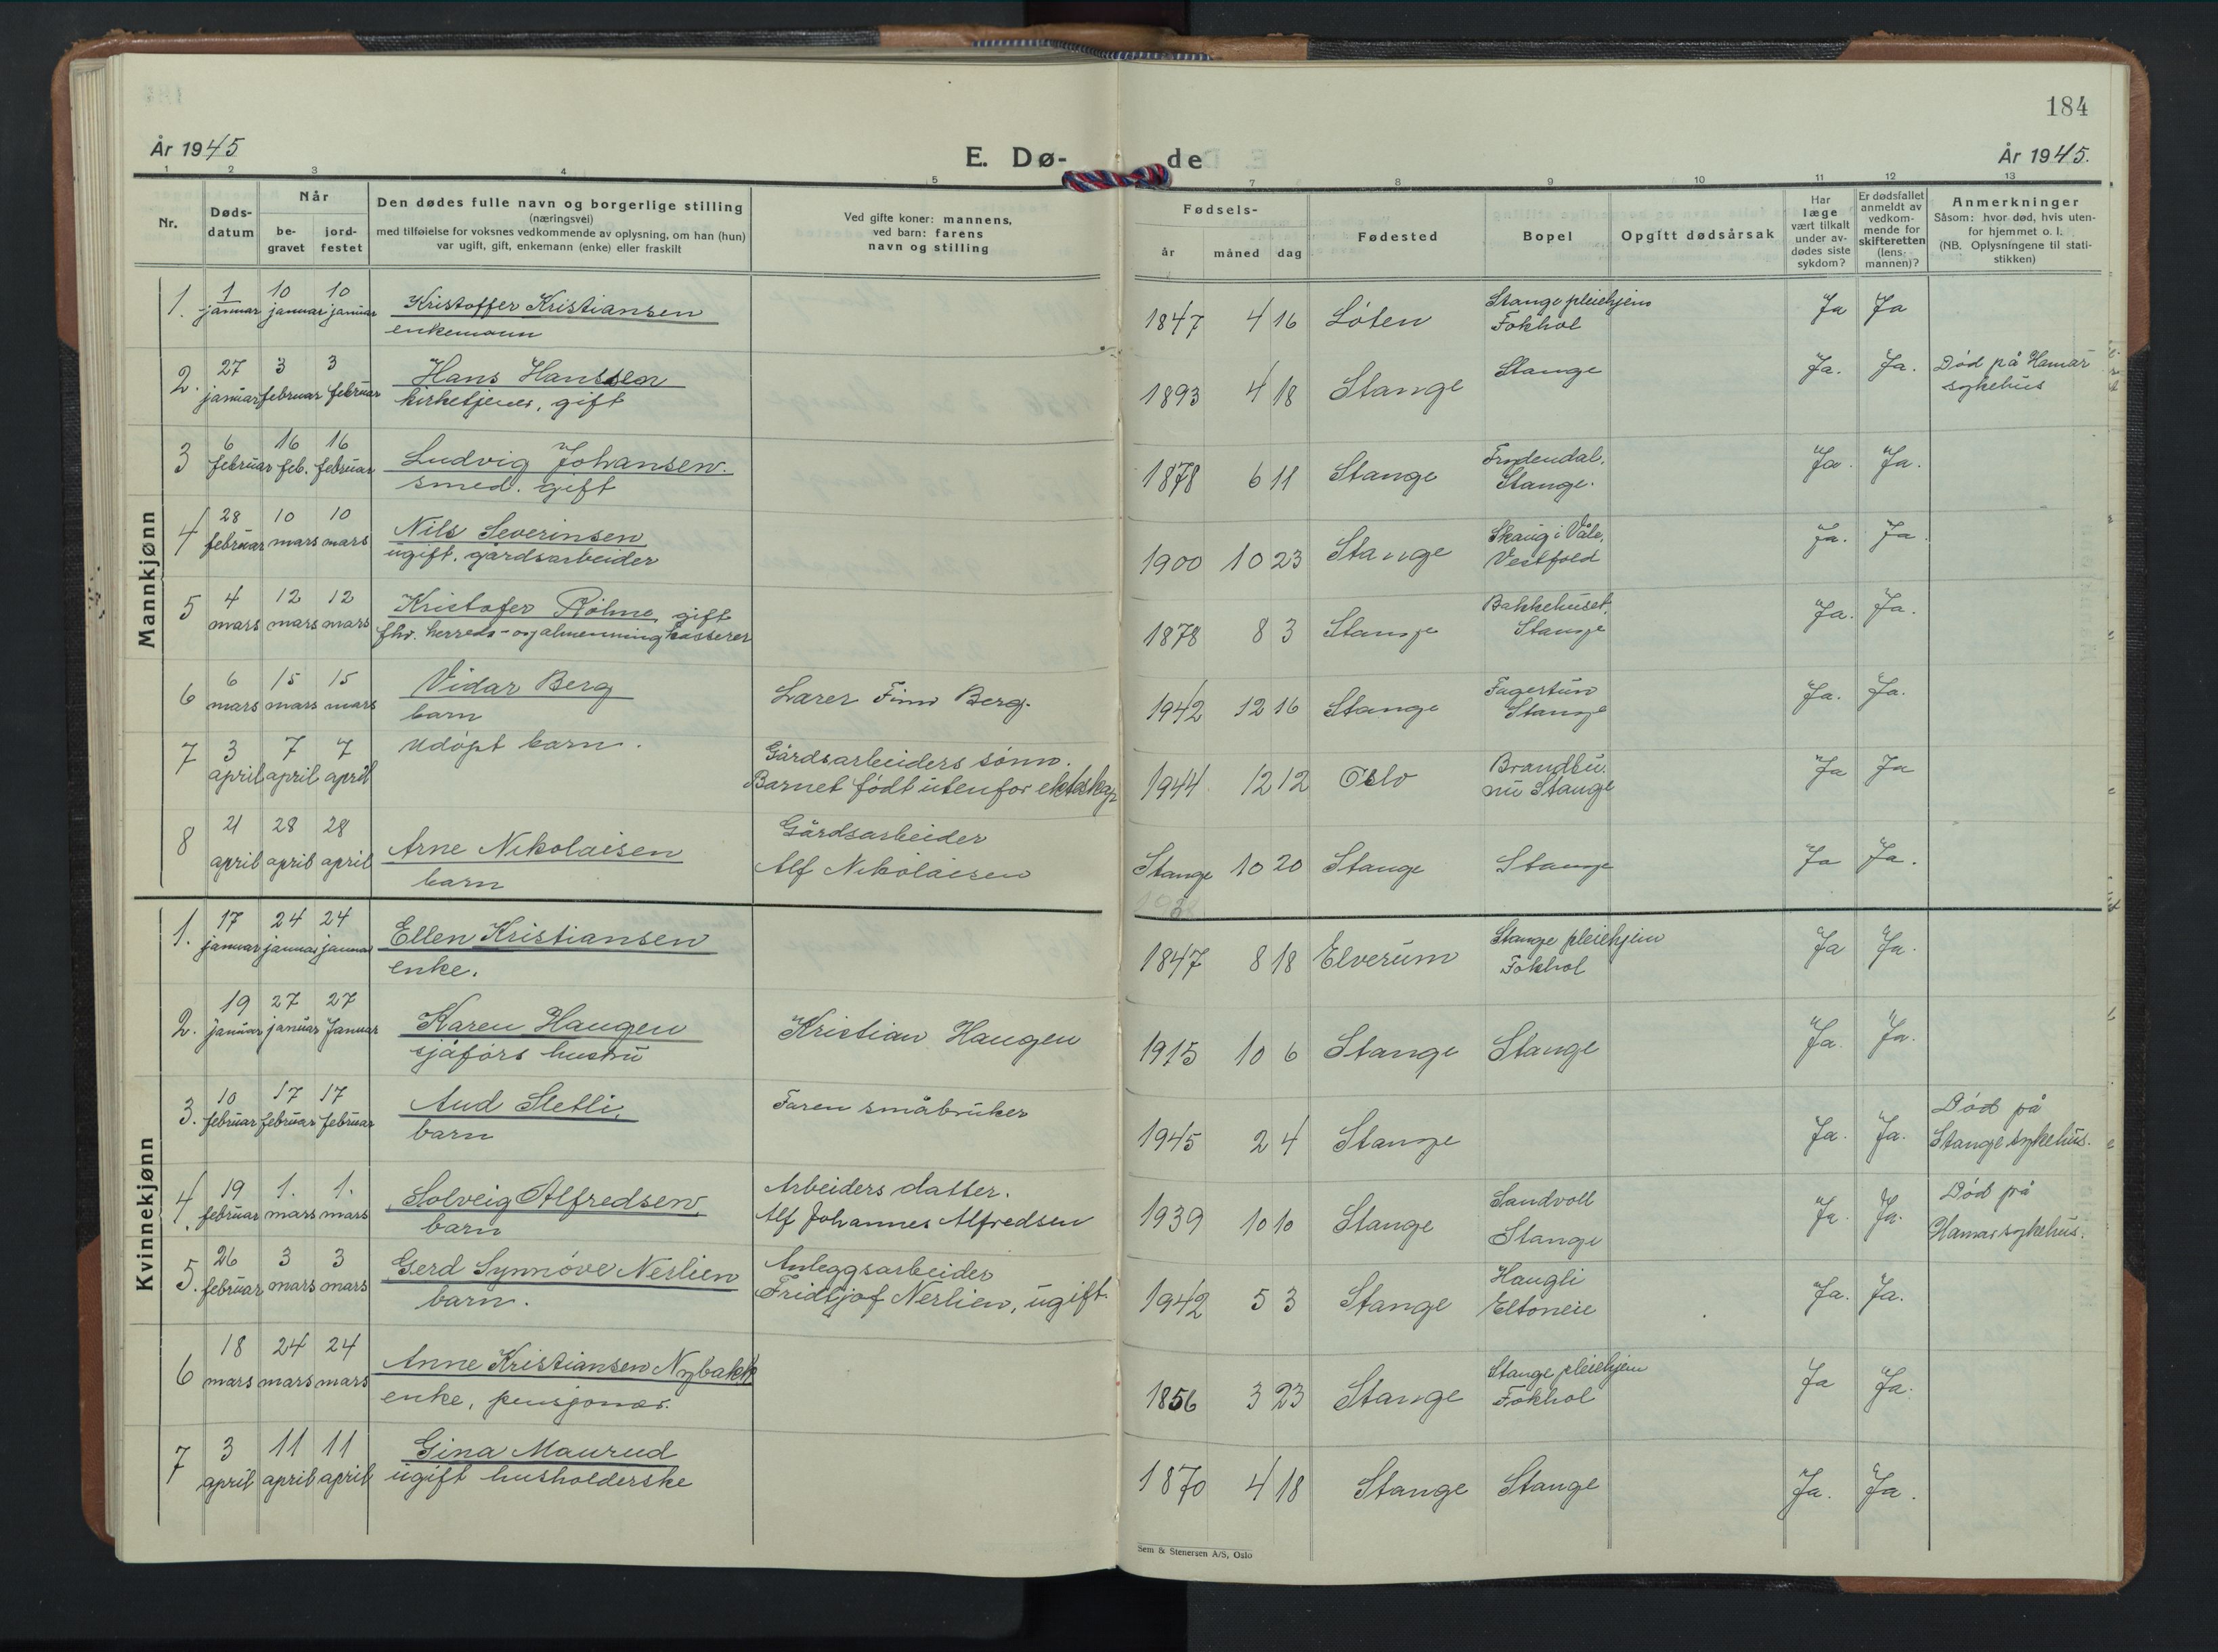 184
År 1945
E. Dø-
de
År 1945.
1 2 3 4 5 7 8 9 10 11 12 13
Nr.
Døds-
datum
Når
be-
gravet
jord-
festet
Den dødes fulle navn og borgerlige stilling
(næringsvei)
med tilføielse for voksnes vedkommende av oplysning, om han (hun)
var ugift, gift, enkemann (enke) eller fraskilt
Ved gifte koner: mannens,
ved barn: farens
navn og stilling
Fødsels-
år måned dag
Fødested
Bopel
Opgitt dødsårsak
Har
læge
vært tilkalt
under av-
dødes siste
sykdom?
Er dødsfallet
anmeldt av
vedkom-
mende for
skifteretten
(lens-
mannen)?
Anmerkninger
Såsom: hvor død, hvis uten-
for hjemmet o. l.
(NB. Oplysningene til stati-
stikken)
Mannkjønn
1 10 10
1. januar januar januar Kristoffer Kristiansen
enkemann
Stange pleiehjem
1847 4 16 Löten Fokhol Ja Ja
27 3 3
2. januar februar februar Hans Hanssen
kirketjener, gift
1893 4 18 Stange Stange Ja. Ja. Død på Hamar
sykehus
6 16 16
3 februar feb. februar Ludvig Johansen.
smed. gift
Frydendal.
1878 6 11 Stange Stange. Ja. Ja.
28 10 10
4 februar mars mars Nils Severinsen
ugift. gårdsarbeider
Skaug i Våle,
1900 10 23 Stange Vestfold Ja. Ja
4 12 12
5 mars mars mars Kristofer Röhne, gift
fhv. herreds- og almenningkasserer
Bakkehuset,
1878 8 3 Stange Stange Ja. Ja.
6 15 15
6 mars mars mars Vidar Berg
barn
Lærer Finn Berg.
Fagertun
1942 12 16 Stange Stange Ja. Ja.
7 3 7 7
april april april Udöpt barn.
Gårdsarbeiders sönn.
Barnet födt utenfor ekteskap
Brandbu.
1944 12 12 Oslo nu Stange Ja Ja
21 28 28
8 april april april Arne Nikolaisen
barn
Gårdsarbeider
Alf Nikolaisen
Stange 10 20 Stange Stange Ja Ja.
Kvinnekjønn
17 24 24
1. januar januar januar Ellen Kristiansen
enke.
Stange pleiehjem
1847 8 18 Elverum Fokhol Ja Ja.
19 27 27
2. januar januar Januar Karen Haugen
sjåförs hustru
Kristian Haugen
1915 10 6 Stange Stange Ja. Ja.
10 17 17
3. februar februar februar Aud Sletli,
barn
Faren småbruker
1945 2 4 Stange Ja. Ja. Död på
Stange sykehus.
19 1. 1.
4. februar mars mars Solveig Alfredsen,
barn
Arbeiders datter.
Alf Johannes Alfredsen
Sandvoll
1939 10 10 Stange Stange Ja. Ja. Död på
Hamar sykehus.
26 3 3
5. februar mars mars Gerd Synnöve Nerlien
barn.
Anleggsarbeider
Fridtjof Nerlien, ugift.
Haugli
1942 5 3 Stange Eltoneie Ja. Ja.
18 24 24
6 mars mars mars Anne Kristiansen Nybakk
enke, pensjonær.
Stange pleiehjem
1856 3 23 Stange Fokhol Ja Ja.
3 11 11
7 april april april Gina Maurud
ugift husholderske
1870 4 18 Stange Stange Ja. Ja.
Sem & Stenersen A/S, Oslo